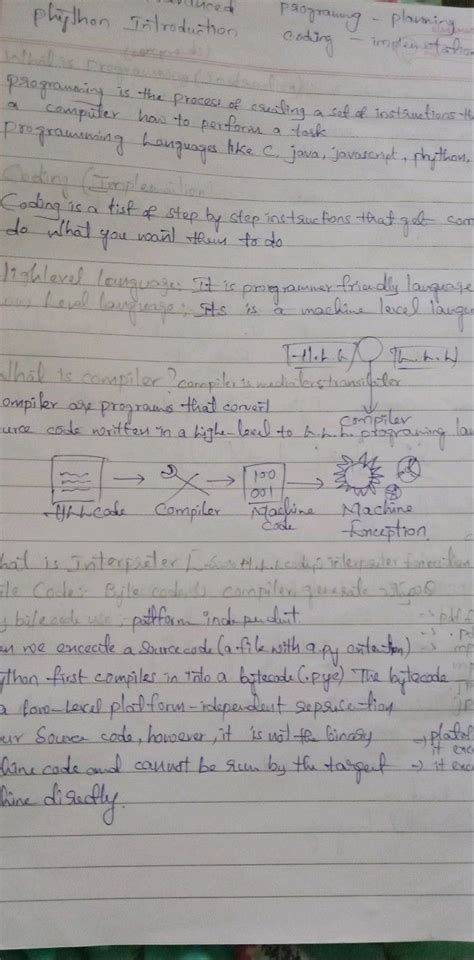 programing - planning
phython Introduction coding - implemetation
What is programming (Instruction)
programming is the process of creating a set of instructions th
a computer how to perform a task
programming Languages like C, java, javascript, phython,
Coding (
Coding is a list of step by step instructions that get com
do what you want them to do
Highlevel language: It is programmer friendly language
level language: Its is a machine level langu
H.L.L L.L.L
What is compiler? compiler is mediater translator
compiler
ompiler are programs that convert
urce code written in a highe-level to L.L.L programing lan
100
001
HLL code Compiler Machine Code Machine Exception
hat is Interpreter
Code:- Byte code compiler generate
bytecode use: pattform independent.
en we excecute a source code (a file with a .py extention)
ython first compiles in into a bytecode (.pyc) The bytecode
a low-level platform-independent
ur Source code, however, it is not the binary → platof
it exc
hine code and cannot be run by the target → it exc
hine directly.